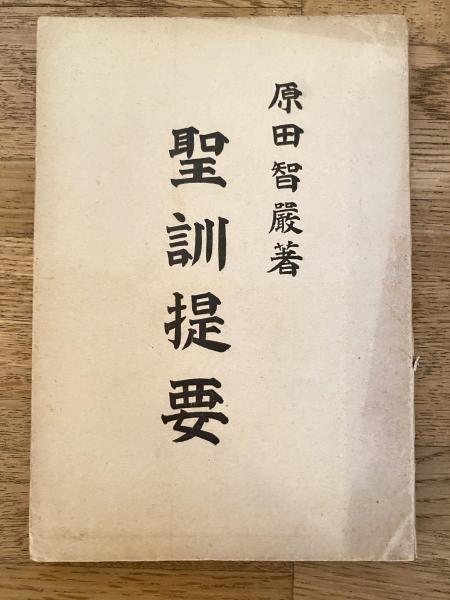 原田智嚴著
聖訓提要